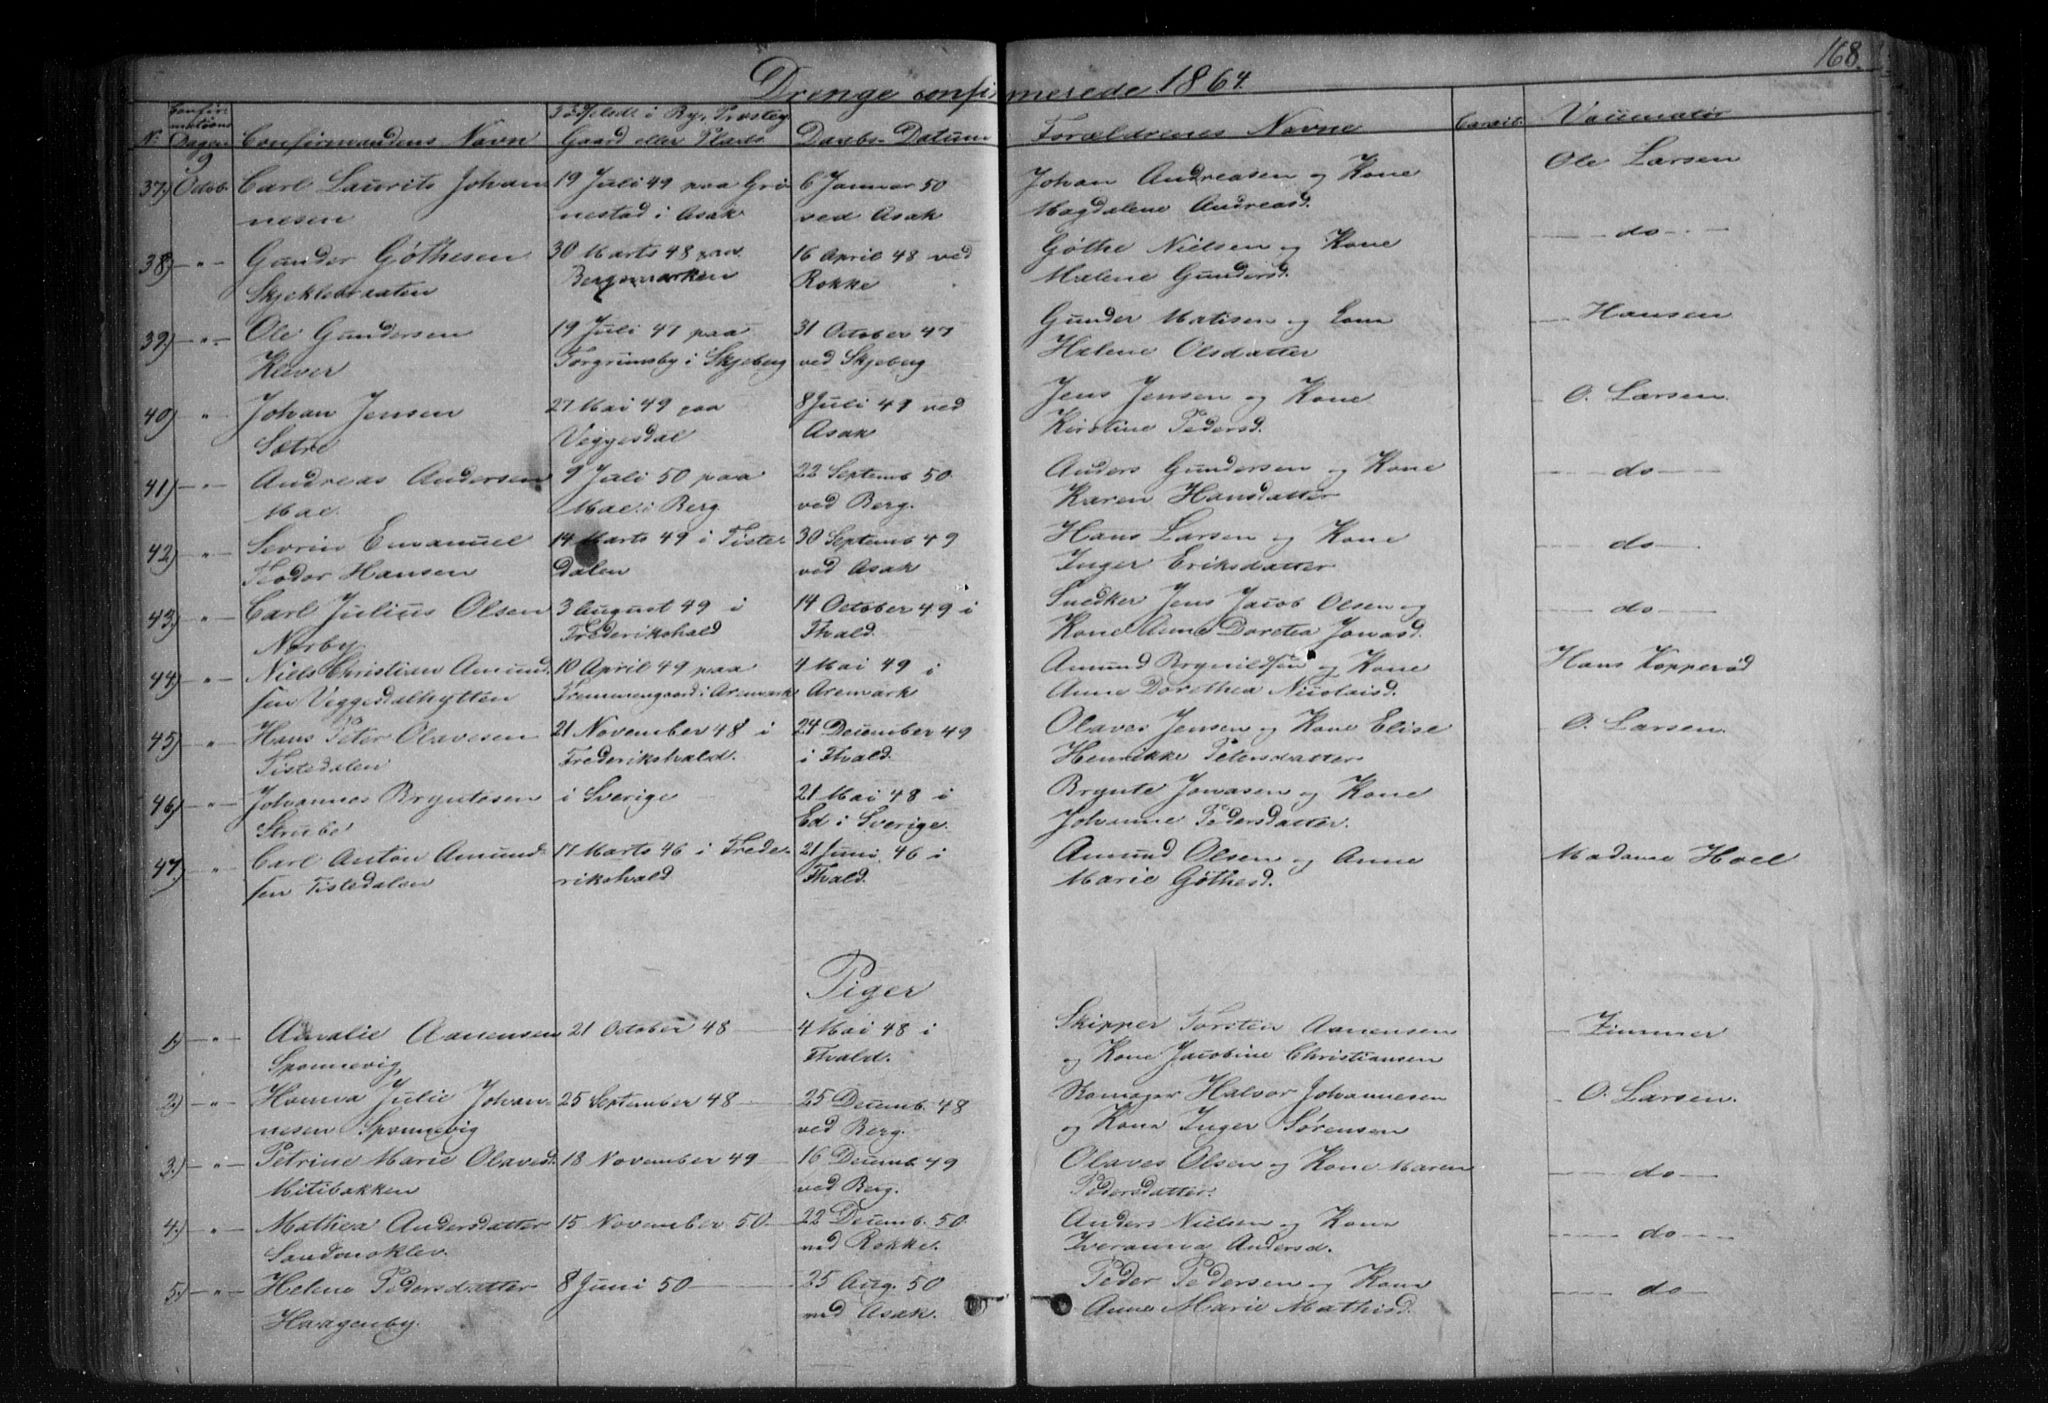 168.
Drenge confirmerede 1864.
Nr. Confirmations Dagen Confirmandens Navn Fødested i By, Præsteg. Gaard eller Plads Daabs-Datum Forældrenes Navne Caract. Vaccinatør
37.) 9 Octob. Carl Laurits Johan 19 Juli 49 paa Grø 6 Januar 50 Johan Andreasen og Kone Ole Larsen
nesen nestad i Asak ved Asak Magdalene Andreasd.
38.) - " - Gunder Gøthesen 30 Marts 48 paa 16 April 48 ved Gøthe Nielsen og Kone do
Skjeklebraaten Bergsmarken Rokke Malene Gundersd.
39.) - " - Ole Gundersen 19 Juli 47 paa 31 October 47 Gunder Matisen og Kone Hansen
Klever Torgrimsby i Skjeberg ved Skjeberg Helene Olsdatter
40.) " Johan Jensen 27 Mai 49 paa 8 Juli 49 ved Jens Jensen og Kone O. Larsen.
Sætre Veggesdal Asak Kirstine Pedersd.
41.) - " - Andreas Andersen 9 Juli 50 paa 22 Septemb 50 Anders Gundersen og Kone do
Mae. Mae i Berg ved Berg. Karen Hansdatter
42.) " Sevrin Emanuel 14 Marts 49 i Tiste- 30 Septemb 49 Hans Larsen og Kone do
Teodor Hansen dalen ved Asak Inger Eriksdatter
43.) - " - Carl Julius Olsen 3 August 49 i 14 October 49 i Snedker Jens Jacob Olsen og do
Nørby Frederikshald Fhald. Kone Anne Dortea Jonasd.
44.) - " - Niels Christian Amund 10 April 49 paa 4 Mai 49 i Amund Brynildsen og Kone Hans Kopperød
sen Veggesdalhytten i Aremark Aremark Anne Dorethea Nicolaisd.
45.) " Hans Peter Olavesen 21 November 48 i 24 December 49 Olaves Jensen og Kone Elise O. Larsen.
Tistedalen Frederikshald. i Fhald. Henrikke Petersdatter
46.) - " - Johannes Bryntesen i Sverige 21 Mai 48 i Brynte Jonasen og Kone
Strube Ed i Sverige. Johanne Pedersdatter.
47.) " Carl Anton Amund- 17 Marts 46 i Frede- 21 Juni 46 i Amund Olsen og Anne Madame Hoel
sen Tistedalen rikshald Fhald. Marie Gøthesd.
Piger
1.) - " - Amalie Aanensen 21 October 48 4 Mai 48 i Skipper Torsten Aanensen Zimmer
Sponnevig Fhald. og Kone Jacobine Christiansen
2.) " Hanna Julie Johan- 25 September 48 25 Decemb. 48 Skomager Halvor Johannesen O. Larsen.
nesen Sponnevig ved Berg. og Kone Inger Sørensen
3.) - " - Petrine Marie Olavesd. 18 November 49 16 Decemb. 49 Olaves Olsen og Kone Maren do
Mitibakken ved Berg. Pedersdatter.
4.) - " - Mathea Andersdatter 15 November 50 22 Decemb. 50 Anders Nielsen og Kone do
Sandmoklev. ved Rokke. Iveranna Andersd.
5.) - " - Helene Pedersdatter 8 Juni 50 25 Aug. 50 Peder Pedersen og Kone do
Haagenby. ved Asak. Anne Marie Mathisd.